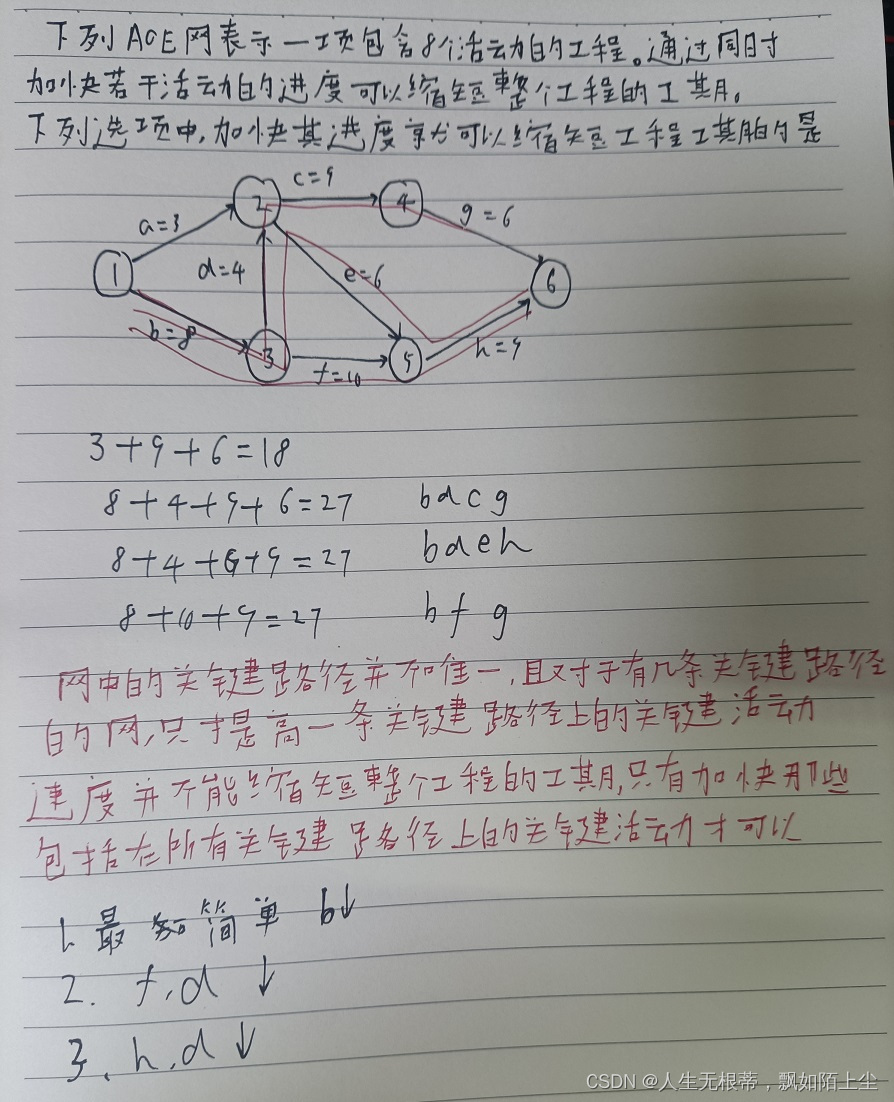 下列AOE网表示一项包含8个活动的工程。通过同时
加快若干活动的进度可以缩短整个工程的工期。
下列选项中,加快其进度就可以缩短工程工期的是
c=9
2
4
a=3
g=6
1
d=4
e=6
6
b=8
3
f=10
5
h=9
3+9+6=18
8+4+9+6=27 bdcg
8+4+6+9=27 bdeh
8+10+9=27 bfg
网中的关键路径并不唯一,且对于有几条关键路径
的网,只提高一条关键路径上的关键活动
速度并不能缩短整个工程的工期,只有加快那些
包括在所有关键路径上的关键活动才可以
1. 最简单 b↓
2. f,d ↓
3. h,d ↓
CSDN @人生无根蒂,飘如陌上尘